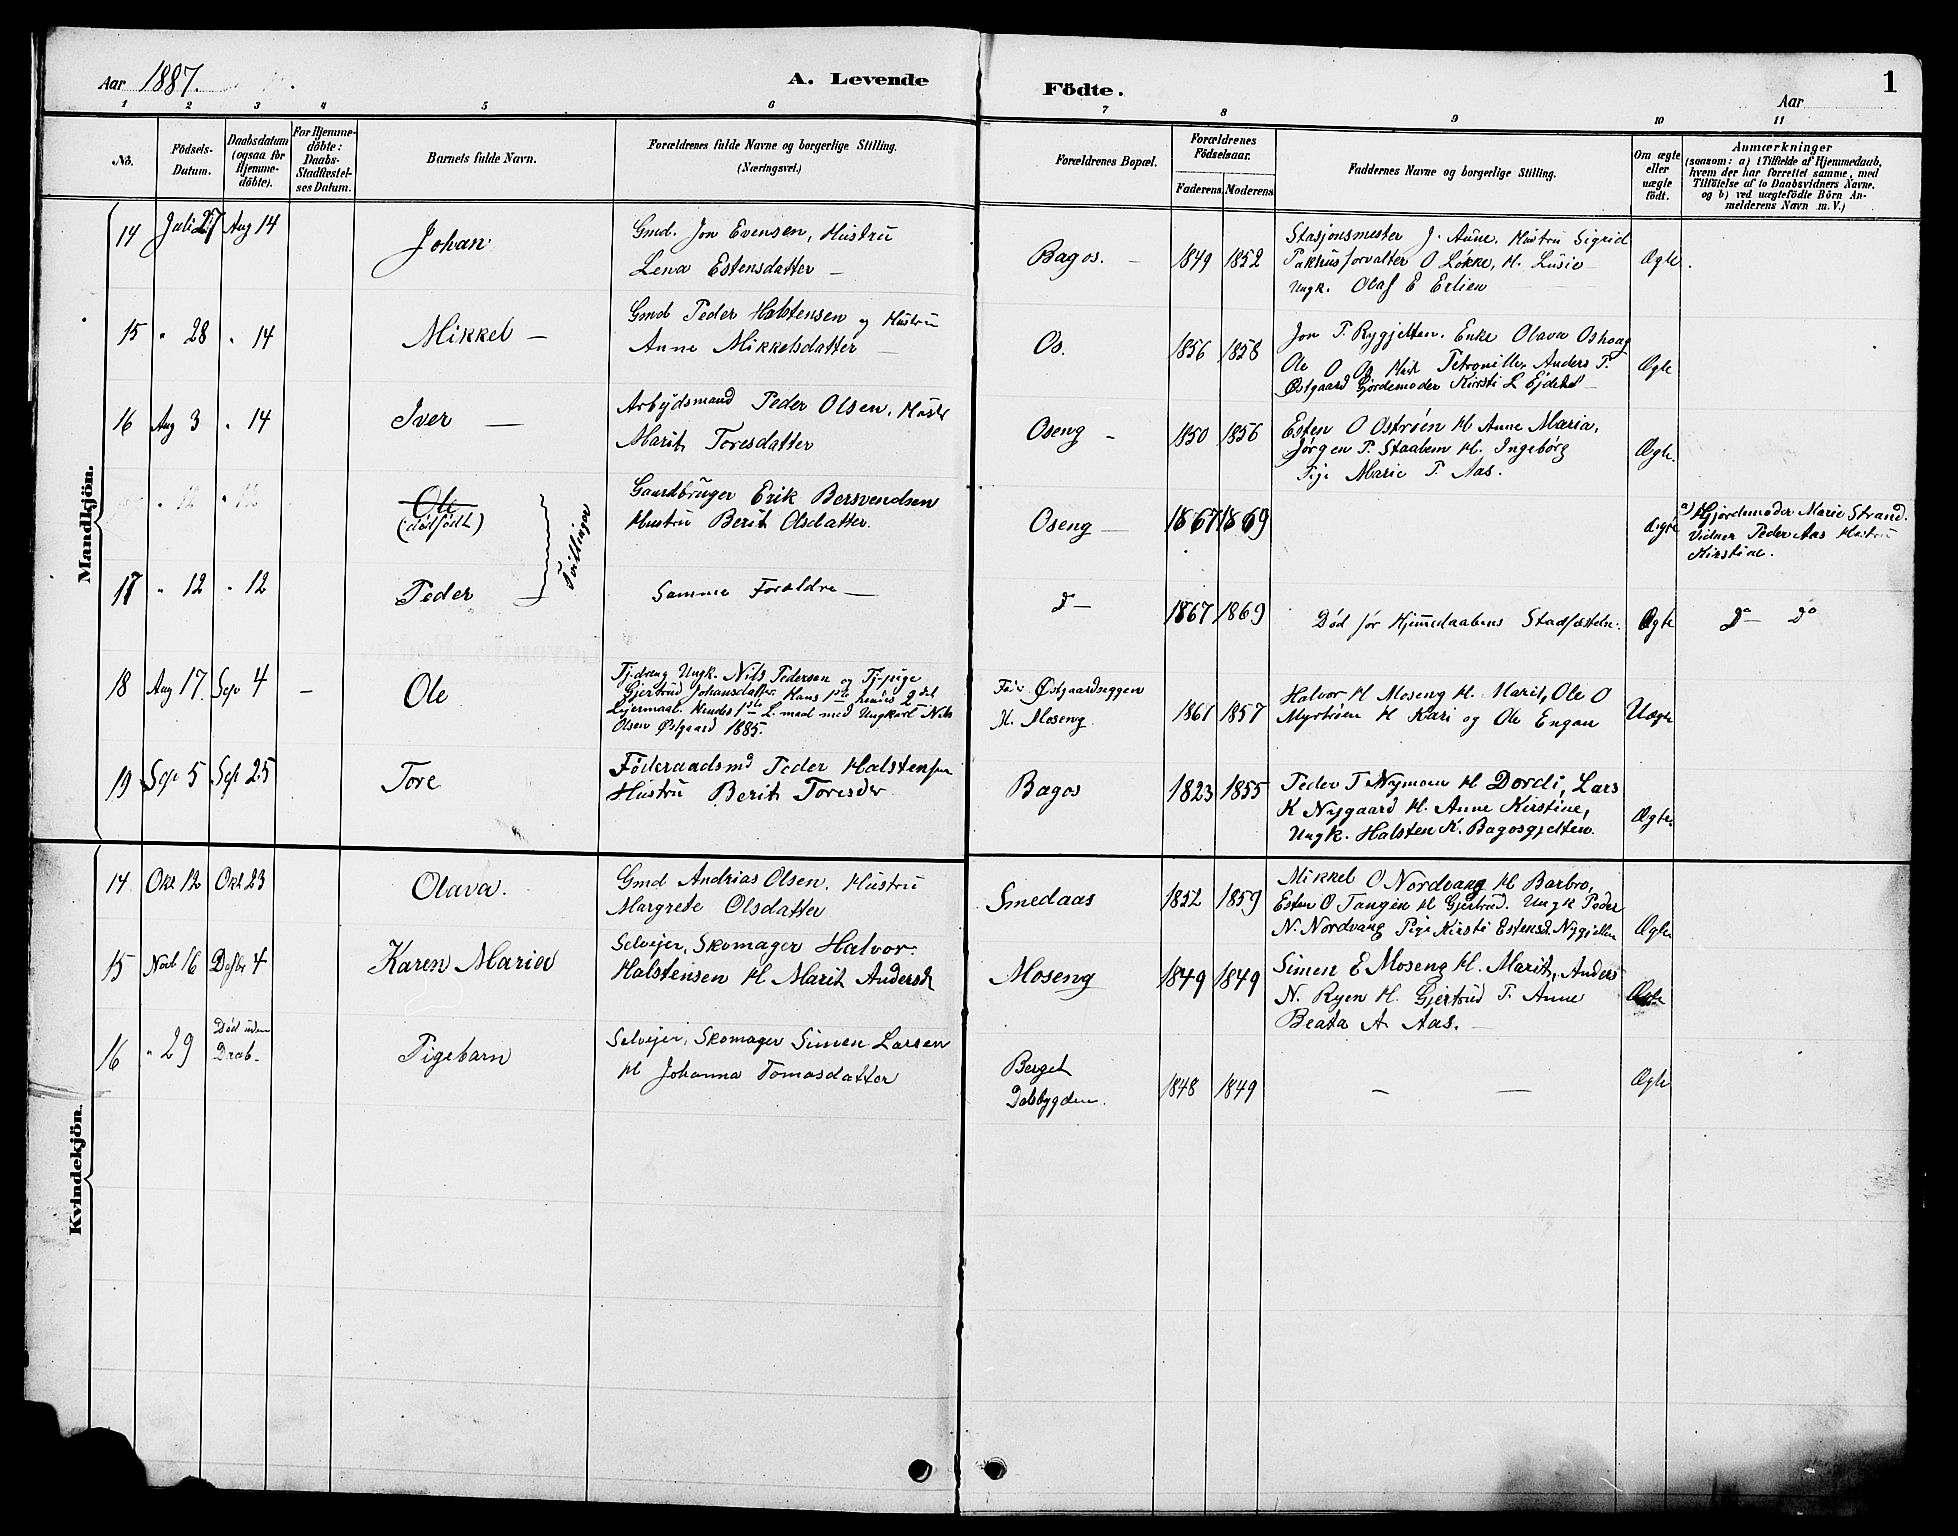 Aar 1887.
A. Levende Födte.
Aar
1
1 2 3 4 5 6 7 8 9 10 11
No.
Födsels-Datum.
Daabsdatum (ogsaa for Hjemme-döbte).
For Hjemme-döbte: Daabs-Stadfæstel-ses Datum.
Barnets fulde Navn.
Forældrenes fulde Navne og borgerlige Stilling.
(Næringsvei.)
Forældrenes Bopæl.
Forældrenes Födselsaar.
Faderens. Moderens.
Faddernes Navne og borgerlige Stilling.
Om ægte eller uægte födt.
Anmærkninger
(saasom: a) i Tilfælde af Hjemmedaab,
hvem der har forrettet samme, med
Tilföielse af to Daabsvidners Navne.
og b) ved uægtefödte Börn An-
melderens Navn m. V.)
Mandkjön.
14 Juli 27 Aug 14 Johan
Gmd. Jon Evensen, Hustru
Lena Estensdatter —
Bagos. — 1849 1852
Stasjonsmester J. Aune. Hustru Sigrid
Pakhusforvalter O Løkke, H. Lusie
Ungk. Olaf E Erlien
Ægte.
15 " 28 " 14 Mikkel —
Gmd Peder Halstensen og Hustru
Anne Mikkelsdatter —
Os. 1856 1858
Jon P. Rygjelten. Enke Olava Oshoug
Ole O Os Hust Petronille, Anders P.
Østgaard Gjordemoder Kirsti L
Ægte
16 Aug 3 " 14 Iver —
Arbejdsmand Peder Olsen, Hustr
Marit Toresdatter
Oseng — 1850 1856
Esten O Østrøen H Anne Maria,
Jørgen P. Staalem H. Ingeborg
Pige Marie P. Aas.
Ægte.
" 12 " 12 Ole
(dødfødt)
Tvillinger
Gaardbruger Erik Bersvendsen
Hustru Berit Olsdatter.
Oseng — 1867 1869
Ægte
a) Hjordemoder Marie Strand.
Vidner Peder Aas Hustru
Kirstine.
17 " 12 " 12 Peder
Samme Forældre —
D — 1867 1869
Død før Hjemmedaabens Stadfæstelse.
Ægte
Do — Do
18 Aug 17. Sep 4 — Ole
Tj.dreng Ungk. Nils Pedersen og Tj.pige
Gjertrud Johansdatter. Hans 1ste hendes 2det
Lejermaal. Hendes 1ste L.maal med Ungkarl Nils
Olsen Østgaard 1885.
Østgaardseggen
M. Moseng. 1861 1857
Halvor H Moseng H. Marit, Ole O
Myrtrøen H Kari og Ole Engan
Uægte
19 Sep 5 Sep 25 Tore
Föderaadsmd Peder Halstensen
Hustru Berit Toresdr
Bagos 1823 1855
Peder T Nymoen H Dordi, Lars
K Nygaard H. Anne Kirstine,
Ungk. Halsten K. Bagosgjelten.
Ægte.
Kvindekjön.
14 Okt 12 Okt 23 Olava.
Gmd Andrias Olsen, Hustru
Margrete Olsdatter
Smedaas 1852 1859
Mikkel O Nordvang H Barbro,
Esten O Tangen H Gjertrud. Ungk Peder
N. Nordvang Pige Kirsti Estensd. Nygjelten
Ægte
15 Novb 16 Desbr 4 Karen Maria
Selvejer, Skomager Halvor
Halstensen H Marit Andersd
Moseng 1849 1849
Simen E Moseng H. Marit, Anders
N. Ryen H. Gjertrud P. Anne
Beata A Aas. —
Ægte
16 " 29 Død uden
Daab. Pigebarn
Selvejer, Skomager Simen Larsen
H Johanna Tomasdatter
Berget
Dalsbygden. 1848 1849
— —
Ægte